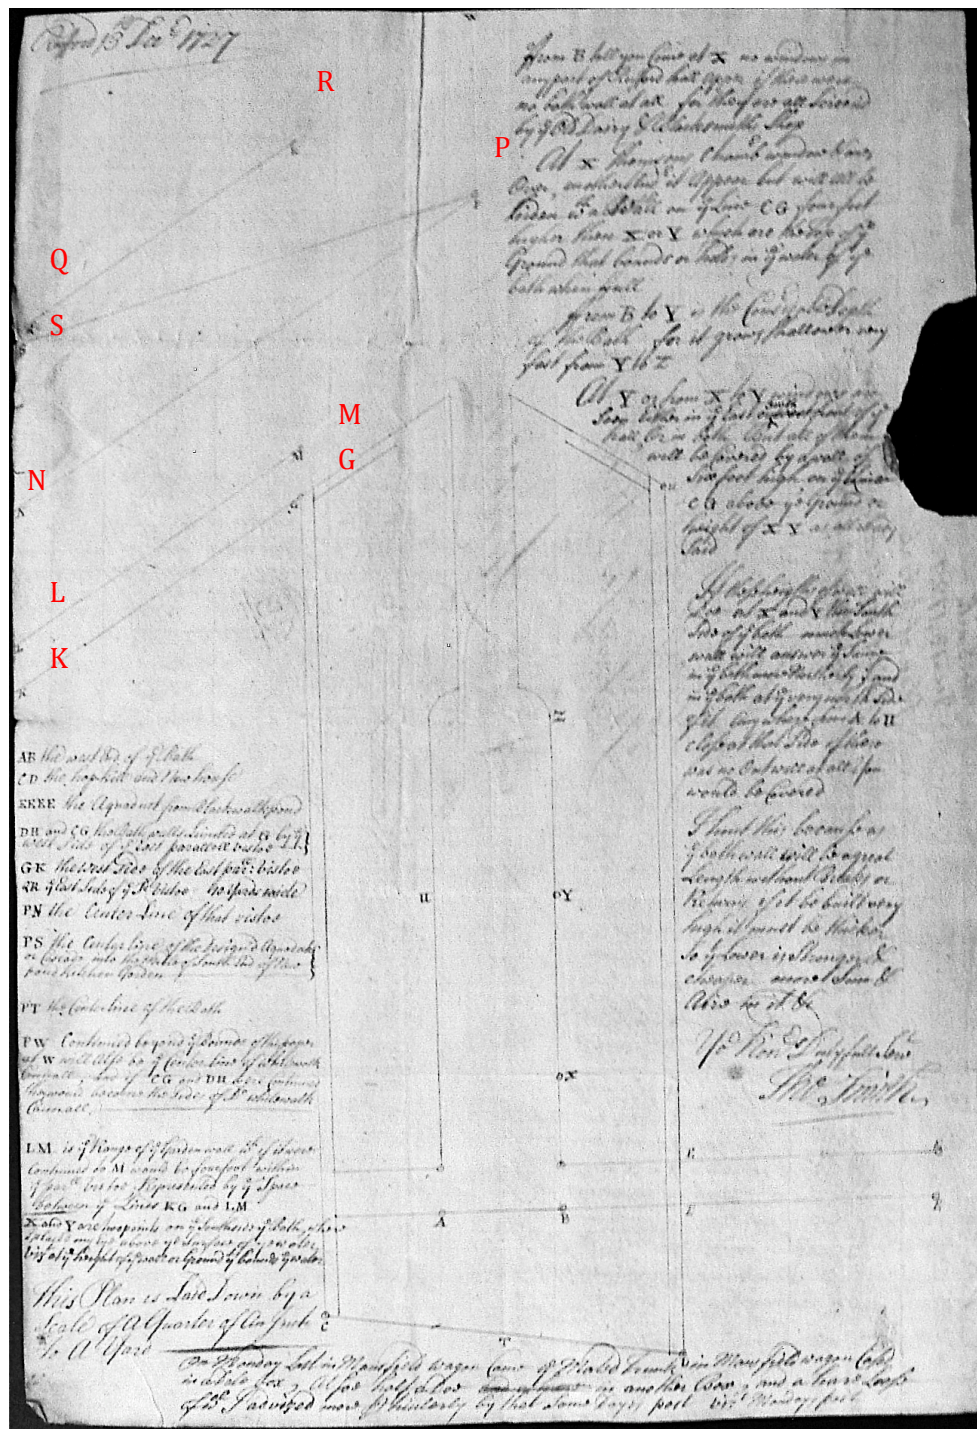 1727
R
P
Q
S
M
G
N
L
K
From B till you Come at X no window in
any part of Rufford hall appear if there were
no bath wall at all for they are all Screend
by ye Old Dairy & Blacksmiths Shop
At X
Over, another but will all be
hiden wth a Wall on ye Line CG four foot
higher then X or Y which are the top of ye
Ground that bounds or holds in ye water of ye
bath when full
From B to Y is the Considerable Depth
of the Bath for it grows shallower very
fast from Y to Z
At Y or from X to Y windows are
Seen Either in ye East or South front of ye
hall, Or in both But all of them
will be covered by a wall of
Six foot high on ye Line
CG above ye Ground or
height of X Y as all ready
Said
at X and Y the South
Side of ye bath a much Lower
wall will answer ye Same
in ye bath more Northerly, and
in ye bath at ye very north Side
of it any where from A to H
close at that Side if there
was no Out wall at all you
would be Covered
I hint this because as
ye bath wall will be a great
Length without Breaks or
Returns if it be built very
high it must be thicker
So ye Lower is Stronger &
cheaper more Sun &
Aire in it &c
Yor Honrs Dutyfull Servt
Tho Smith
AB the west End of ye Bath
CD the hopkill and New house
EEEE the Aquaduct from Blackwalk pond
DH and CG the Bath walls Limited at G by ye
west Side of ye East parallell vistoe
GK the west Side of the East par: vistoe
QR ye East Side of ye Sd vistoe 40 yards wide
PN the Center Line of that vistoe
PS the Center line of the design'd Aquaduct
or Canall into the Middle of South End of New
pond Kitchen Garden
PT the Center line of the Bath
PW Continued beyond ye bounds of this paper
at W will Also be ye Center Line of Whitewath
Cannall, and if CG and DH were Continued
they would become the Sides of Sd whitewath
Cannall,
LM is ye Range of ye Garden wall wch if it were
Continued to M would be four foot within
ye parll vistoe Represented by ye Space
between ye Lines KG and LM
X and Y are two points on ye South side ye Bath, where
I place my Eye above ye Surface of ye water
but at ye height of ye wall or Ground yt bounds ye water
This Plan is Laid Down by a
Scale of A Quarter of An Inch
To A Yard
H
Z
H
oY
oX
E
E
A
B
E
E
C
T
D
On Monday Last in Mansfield wagon Came in Mansfield wagon
in a deale box, Allso half a doe in another Box, and a hare
of wch I advised more pticularly by that Same Days post Monday's post